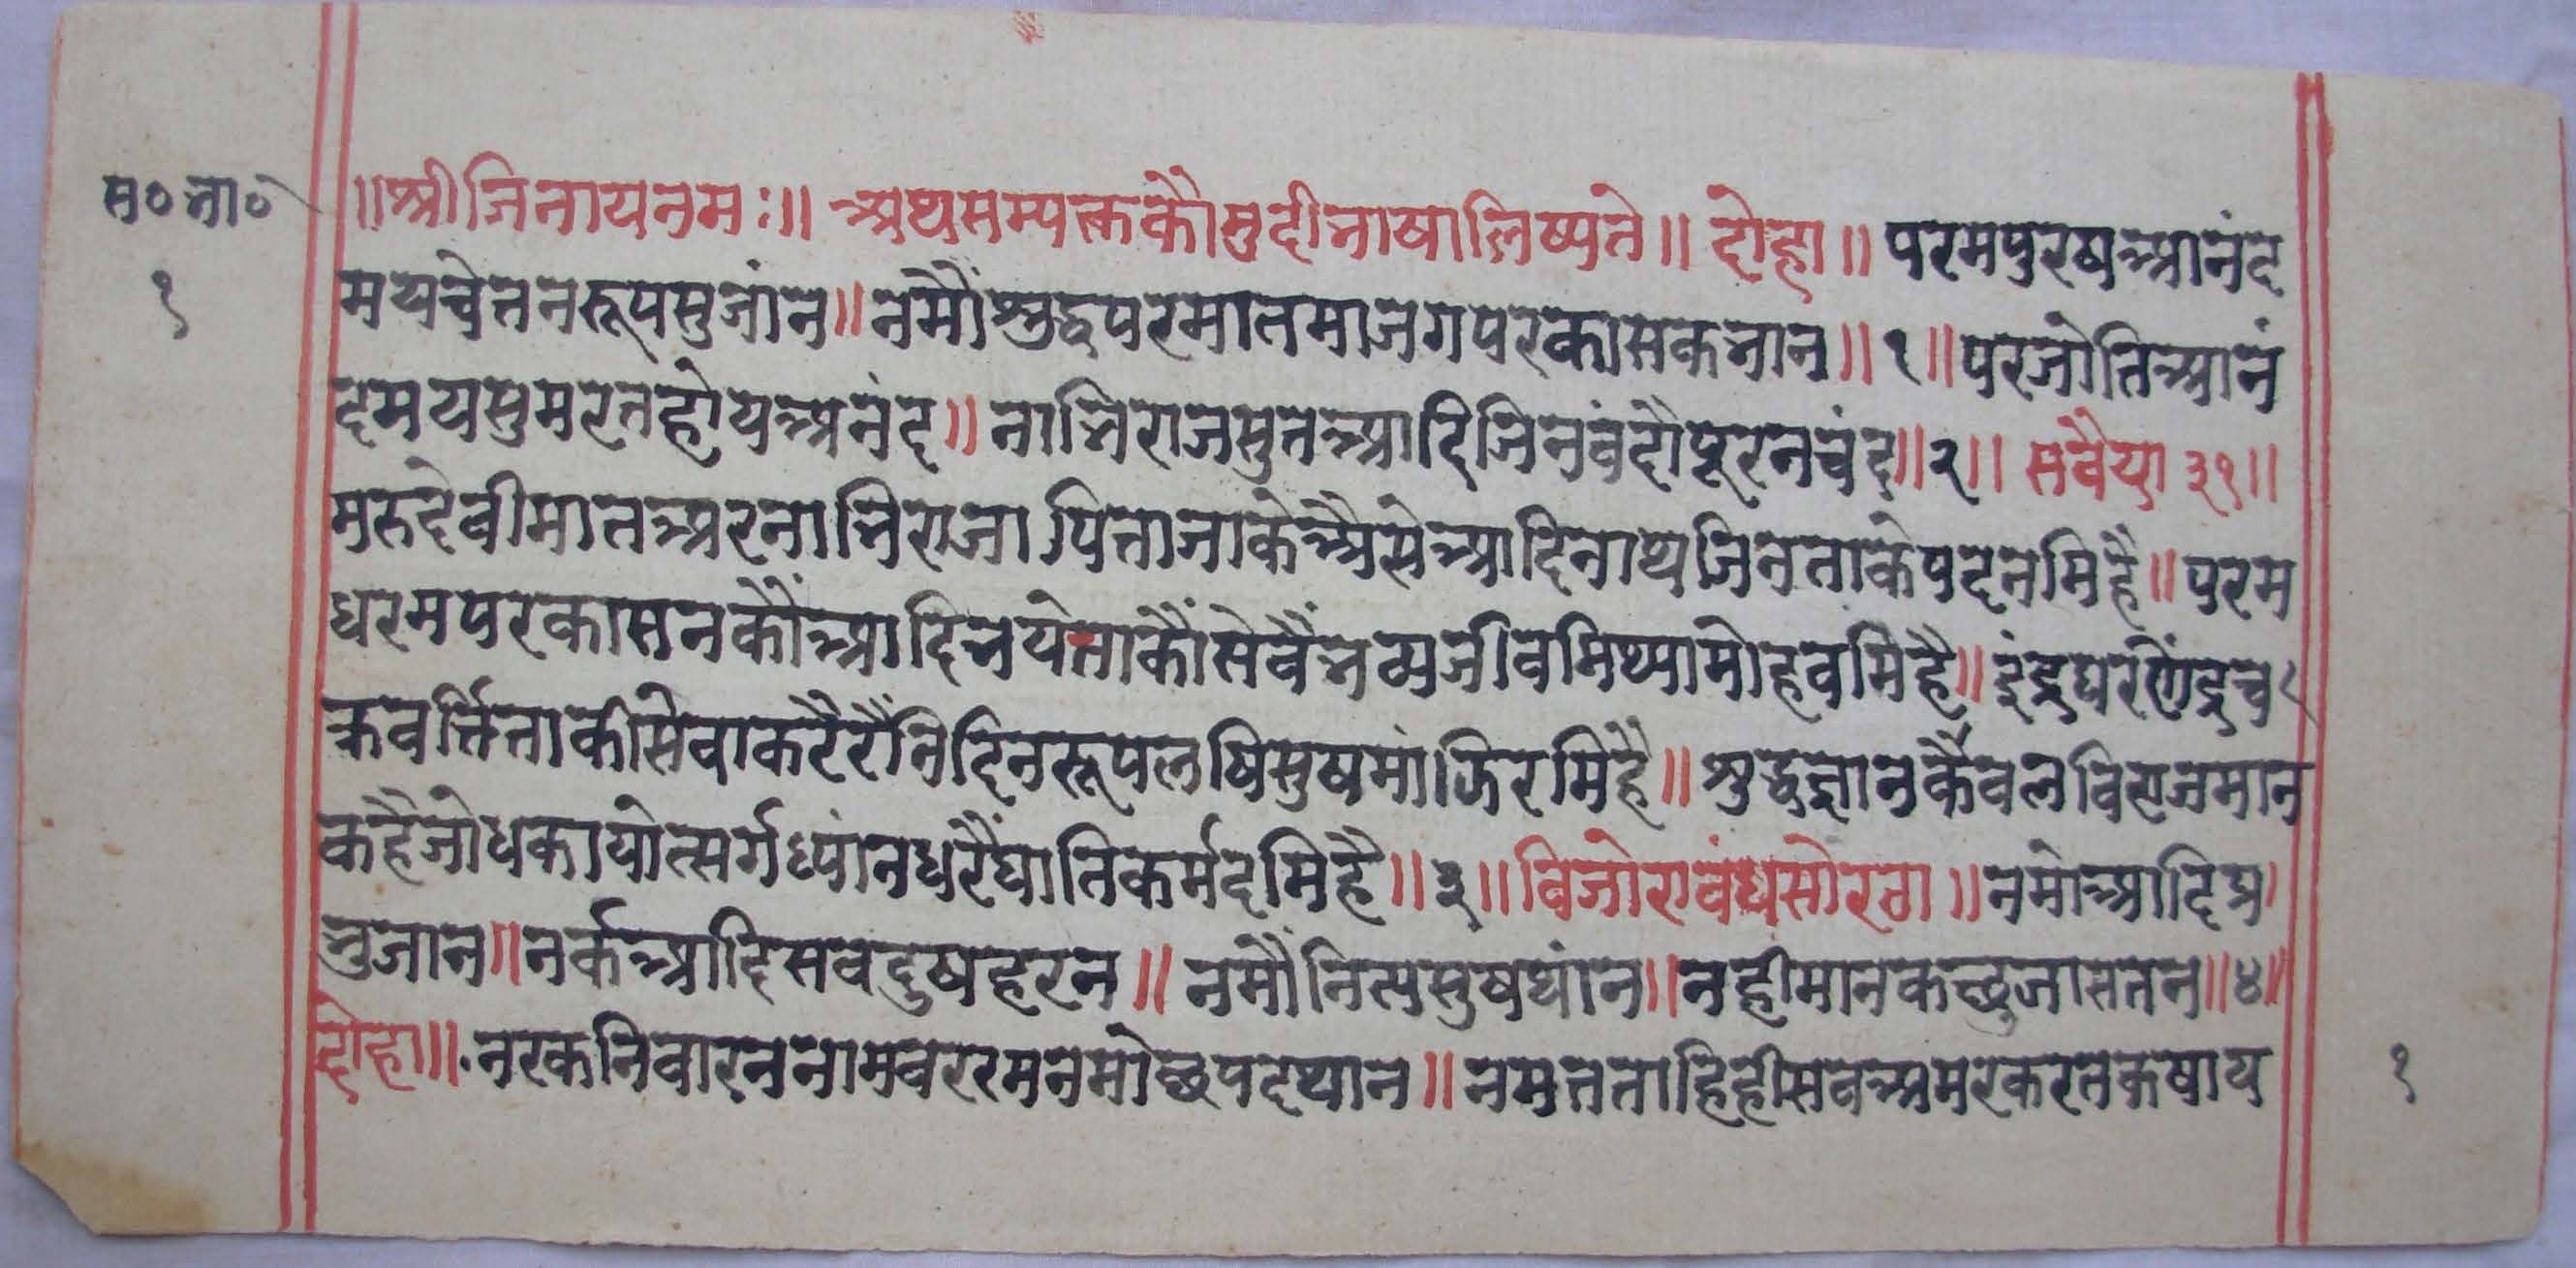 स० भा०
१
॥श्रीजिनायनमः॥ अथसम्यक्तकौमुदीभाषालिष्यते॥ दोहा॥ परमपुरषआनंद
मयचेतनरूपसुजांन॥ नमौंशुद्धपरमातमाजगपरकासकभान॥१॥ परजोतिआनं
दमयसुमरतहोयअनंद॥ नाभिराजसुतआदिजिनवंदौपूरनचंद॥२॥ सवैया ३१॥
मरुदेवीमातअरनाभिराजा पिताजाकेअैसेआदिनाथजिनताकेपदनमिहै॥ परम
धरमपरकासनकौंआदिभयेताकौंसेवैंभव्यजीवमिथ्यामोहवमिहै॥ इंद्रधरणेंद्रच
क्रवर्त्तिताकीसेवाकरैरैंनिदिनरूपलषिसुषमांफिरमिहै॥ शुद्धज्ञानकैवलविराजमान
कहैजोधकायोत्सर्गध्यांनधरैंघातिकर्मदमिहै॥३॥ विजोरावंधसोरठा॥ नमोआदिप्र
भुजान॥ नर्कआदिसवदुषहरन॥ नमौंनित्यसुषथांन॥ नहीमानकच्छुजासतन॥४॥
दोहा॥ नरकनिवारननामवररमनमोच्छपदथान॥ नमतताहिहीसवअमरकरतकषाय
१